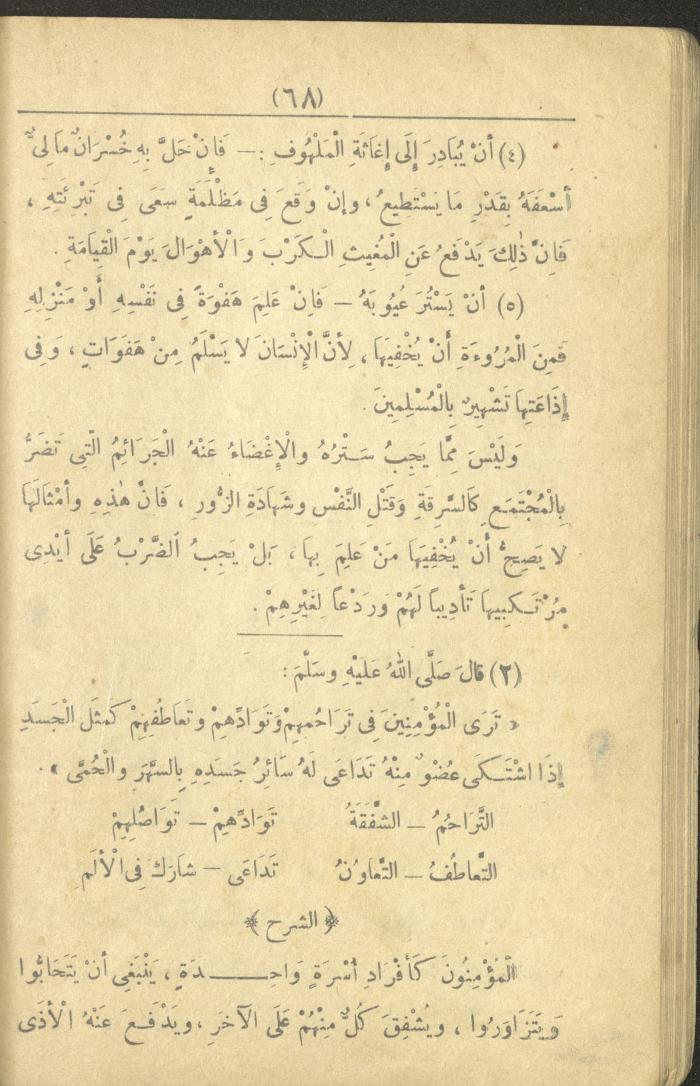 (٦٨)
(٤) أَنْ يُبَادِرَ إِلَى إِغَاثَةِ الْمَلْهُوفِ :— فَإِنْ حَلَّ بِهِ خُسْرَانٌ مَالِىٌّ
أَسْعَفَهُ بِقَدْرِ مَا يَسْتَطِيعُ ، وإنْ وَقَعَ فِى مَظْلَمَةٍ سَعَى فِى تَبْرِئَتِهِ ،
فَإِنَّ ذٰلِكَ يَدْفَعُ عَنِ الْمُغِيثِ الْكَرْبَ وَالْأَهْوَالَ يَوْمَ الْقِيَامَةِ .
(٥) أَنْ يَسْتُرَ عُيُوبَهُ — فَإِنْ عَلِمَ هَفْوَةً فِى نَفْسِهِ أَوْ مَنْزِلِهِ
فَمِنَ الْمُرُوءَةِ أَنْ يُخْفِيَهَا ، لِأَنَّ الْإِنْسَانَ لَا يَسْلَمُ مِنْ هَفَوَاتٍ ، وَفِى
إِذَاعَتِهَا تَشْهِيرٌ بِالْمُسْلِمِينَ .
وَلَيْسَ مِمَّا يَجِبُ سَتْرُهُ والْإِغْضَاءُ عَنْهُ الْجَرَائِمُ الَّتِى تَضُرُّ
بِالْمُجْتَمَعِ كَالسَّرِقَةِ وَقَتْلِ النَّفْسِ وشَهَادَةِ الزُّورِ ، فَإِنَّ هٰذِهِ وأَمْثَالَهَا
لَا يَصِحُّ أَنْ يُخْفِيَهَا مَنْ عَلِمَ بِهَا ، بَلْ يَجِبُ الضَّرْبُ عَلَى أَيْدِى
مُرْتَكِبِيهَا تَأْدِيباً لَهُمْ وَرَدْعاً لِغَيْرِهِمْ .
(٢) قَالَ صَلَّى اللهُ عَلَيْهِ وسَلَّمَ :
« تَرَى الْمُؤْمِنِينَ فِى تَرَاحُمِهِمْ وَتَوَادِّهِمْ وتَعَاطُفِهِمْ كَمَثَلِ الْجَسَدِ
إِذَا اشْتَكَى عُضْوٌ مِنْهُ تَدَاعَى لَهُ سَائِرُ جَسَدِهِ بِالسَّهَرِ والْحُمَّى » .
التَّرَاحُمُ — الشَّفَقَةُ تَوَادِّهِمْ — تَوَاصُلِهِمْ
التَّعَاطُفُ — التَّعَاوُنُ تَدَاعَى — شَارَكَ فِى الْأَلَمِ
﴿ الشرح ﴾
الْمُؤْمِنُونَ كَأَفْرَادِ أُسْرَةٍ وَاحِدَةٍ ، يَنْبَغِى أَنْ يَتَحَابُّوا
وَيَتَزَاوَرُوا ، ويُشْفِقَ كُلٌّ مِنْهُمْ عَلَى الْآخَرِ ، ويَدْفَعَ عَنْهُ الْأَذَى